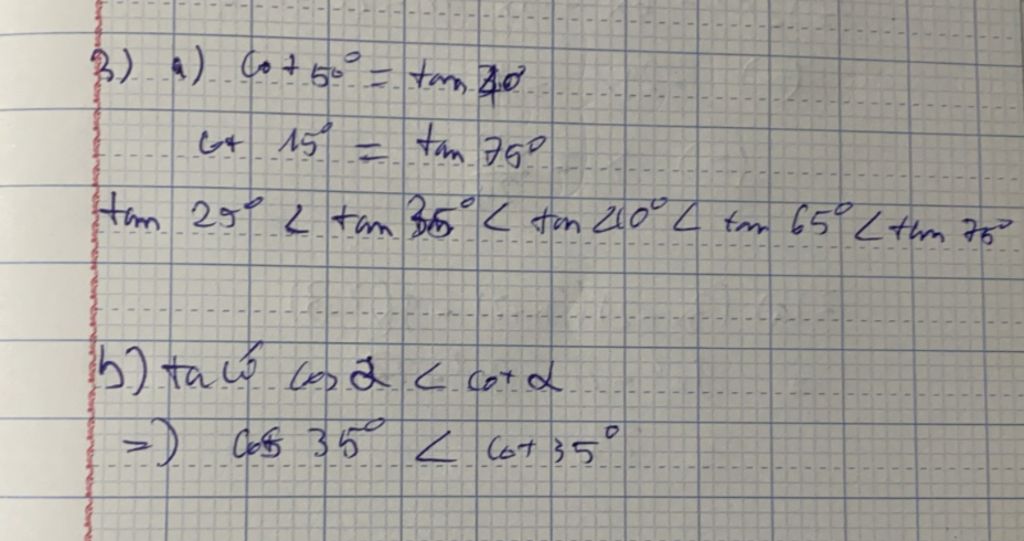 3) a) Cot 50° = tan 40°
Cot 15° = tan 75°
tan 25° < tan 35° < tan 40° < tan 65° < tan 75°
b) ta có cos α < cot α
=) Cos 35° < Cot 35°